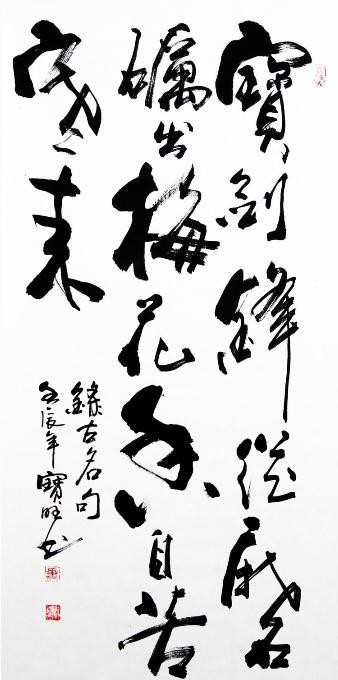 寶劍鋒從磨
礪出梅花香自苦
寒來
錄古名句
壬辰年寶旺书